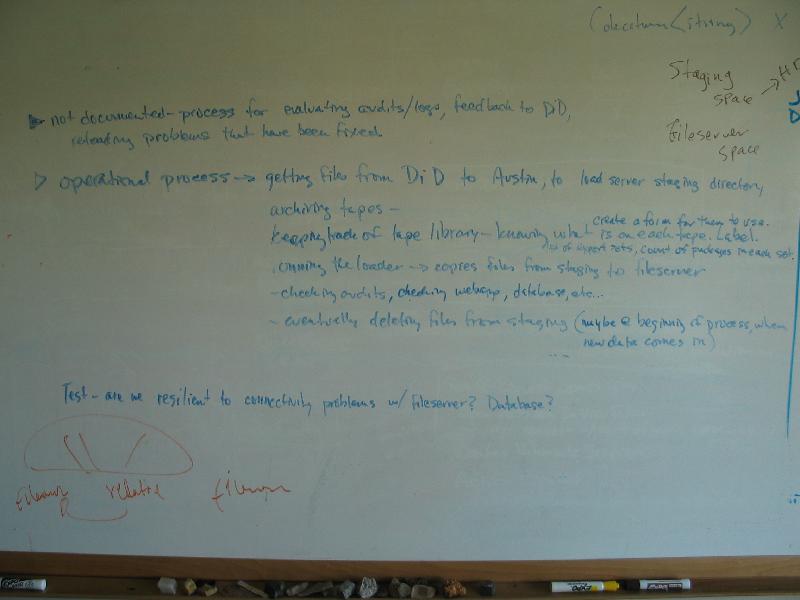 string) X
Staging
space
Fileserver
space
not documented - process for evaluating audits/logs, feedback to DiD,
reloading problems that have been fixed.
operational process → getting files from DiD to Austin, to load server staging directory
archiving tapes -
create a form for them to use.
keeping track of tape library - knowing what is on each tape. Label.
of export sets, count of packages in each set.
running the loader → copies files from staging to fileserver
- checking audits, checking webapp, database, etc...
- eventually deleting files from staging (maybe @ beginning of process, when
new data comes in)
...
Test - are we resilient to connectivity problems w/ fileserver? Database?
EXPO